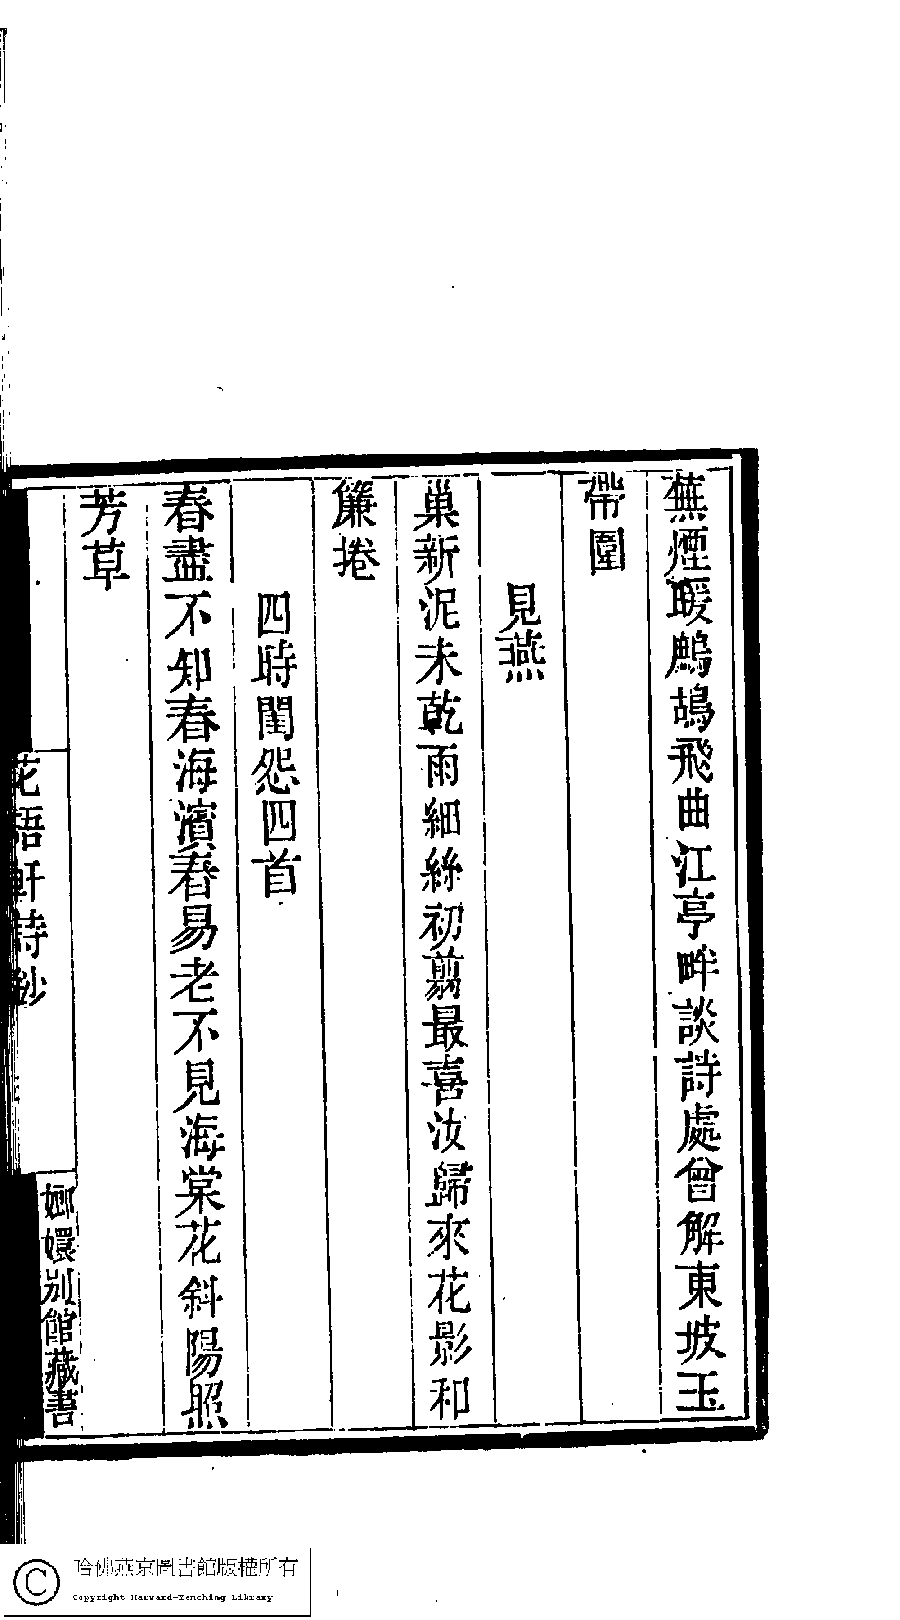 蕪煙暖鷓鴣飛曲江亭畔談詩處曾解東坡玉
帶圍
見燕
巢新泥未乾雨細絲初翦最喜汝歸來花影和
簾捲
四時閨怨四首
春盡不知春海濱春易老不見海棠花斜陽照
芳草
花語軒詩鈔
嫏嬛別館藏書
哈佛燕京圖書館版權所有
Copyright Harvard-Yenching Library